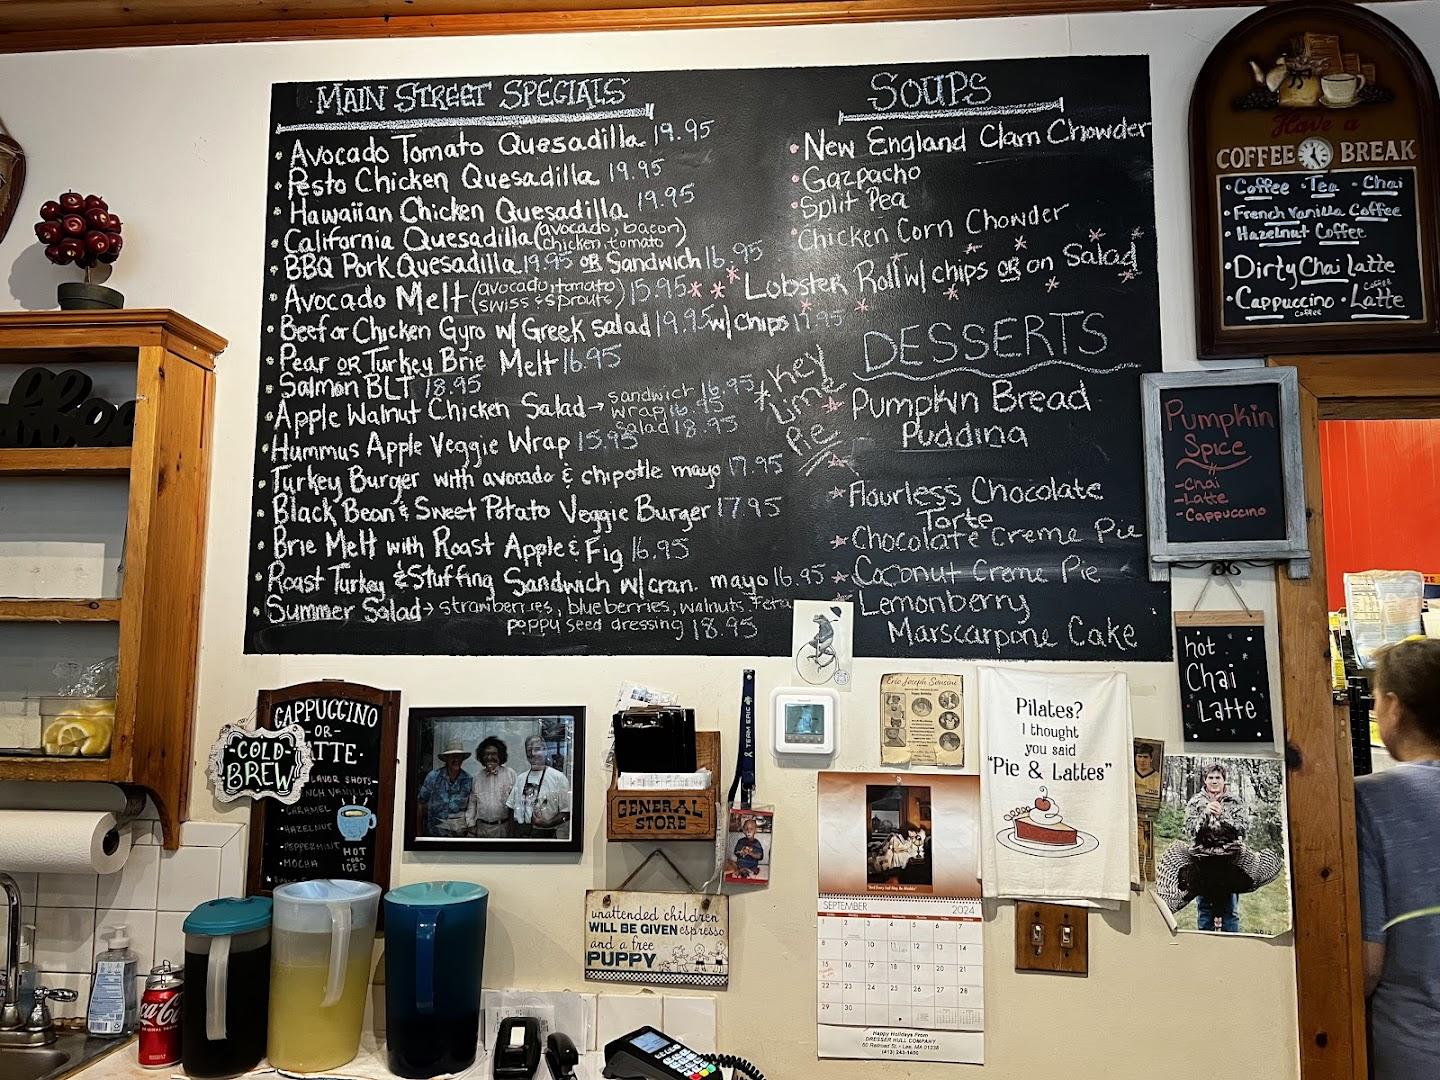 MAIN STREET SPECIALS
Avocado Tomato Quesadilla 19.95
Pesto Chicken Quesadilla 19.95
Hawaiian Chicken Quesadilla 19.95
California Quesadilla (avocado, bacon)
chicken, tomato
BBQ Pork Quesadilla 19.95 OR Sandwich 16.95
Avocado Melt (avocado, tomato) 15.95
swiss & sprouts
Beef or Chicken Gyro w/ Greek salad 19.95 w/ chips 17.95
Pear OR Turkey Brie Melt 16.95
Salmon BLT 18.95
Apple Walnut Chicken Salad → sandwich 16.95
wrap 16.95
salad 18.95
Hummus Apple Veggie Wrap 15.95
Turkey Burger with avocado & chipotle mayo 17.95
Black Bean & Sweet Potato Veggie Burger 17.95
Brie Melt with Roast Apple & Fig 16.95
Roast Turkey & Stuffing Sandwich w/ cran. mayo 16.95
Summer Salad → strawberries, blueberries, walnuts, feta
poppy seed dressing 18.95
SOUPS
New England Clam Chowder
Gazpacho
Split Pea
Chicken Corn Chowder
Lobster Roll w/ chips OR on Salad
DESSERTS
Key
Lime
Pie
Pumpkin Bread
Pudding
Flourless Chocolate
Torte
Chocolate Creme Pie
Coconut Creme Pie
Lemonberry
Marscarpone Cake
Have a
COFFEE BREAK
Coffee Tea Chai
French Vanilla Coffee
Hazelnut Coffee
Dirty Chai Latte
Cappuccino Latte
Coffee
Coffee
Pumpkin
Spice
-Chai
-Latte
-Cappuccino
hot
Chai
Latte
CAPPUCCINO
-OR-
ATTE
COLD
BREW
LAVOR SHOTS
NCH VANILLA
CARAMEL
HAZELNUT
PEPPERMINT
MOCHA
HOT
-OR-
ICED
GENERAL
STORE
TEAM ERIC
unattended children
WILL BE GIVEN espresso
and a free
PUPPY
Eric Joseph Sousini
Pilates?
I thought
you said
"Pie & Lattes"
SEPTEMBER 2024
1 2 3 4 5 6 7
8 9 10 11 12 13 14
15 16 17 18 19 20 21
22 23 24 25 26 27 28
29 30
Happy Holidays From
DRESSER HULL COMPANY
60 Railroad St. • Lee, MA 01238
(413) 243-1400
Coca-Cola